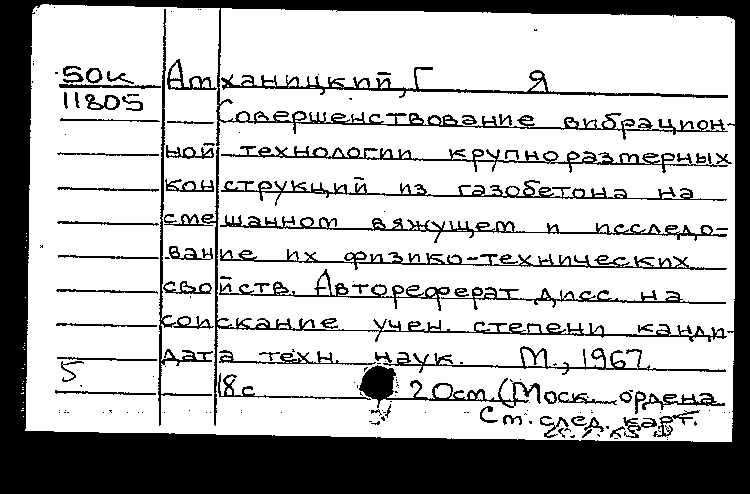 50к Атханицкий, Г Я
11805
Совершенствование вибрацион-
ной технологии крупноразмерных
конструкций из газобетона на
смешанном вяжущем и исследо=
вание их физико-технических
свойств. Автореферат дисс. на
соискание учен. степени канди-
дата техн. наук. М., 1967.
5. 18с 20см. (Моск. ордена
См. след. карт.